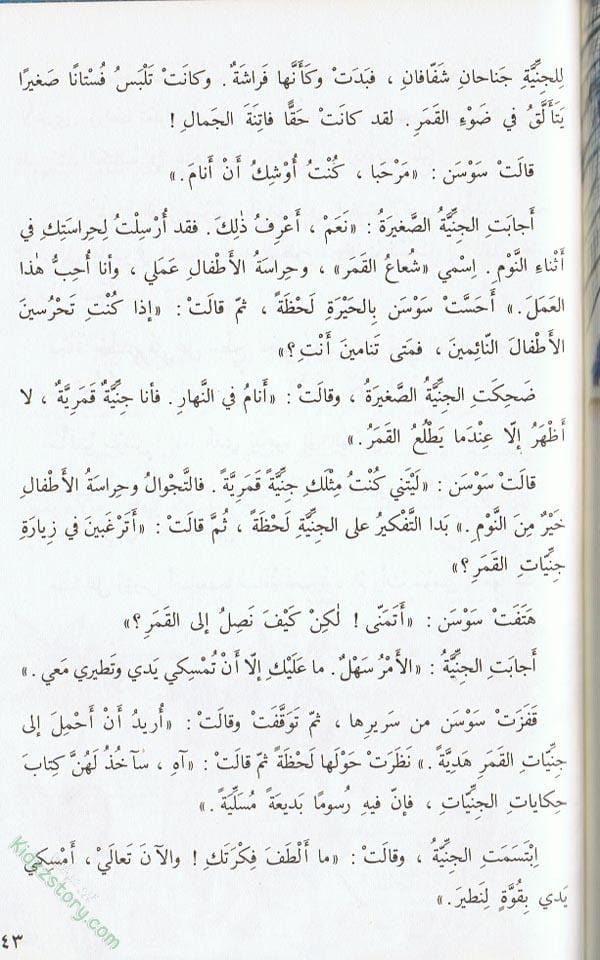 لِلجِنِّيَّةِ جَناحانِ شَفّافانِ ، فَبَدَتْ وَكَأَنَّها فَراشَةٌ . وكانَتْ تَلْبَسُ فُسْتانًا صَغيرًا
يَتَأَلَّقُ في ضَوْءِ القَمَرِ . لقد كانَتْ حَقًّا فاتِنَةَ الجَمالِ !
قالَتْ سَوْسَن : «مَرْحَبا ، كُنْتُ أُوشِكُ أَنْ أَنامَ .»
أَجابَتِ الجِنِّيَّةُ الصَّغيرَةُ : «نَعَمْ ، أَعْرِفُ ذٰلِكَ . فقد أُرْسِلْتُ لِحِراسَتِكِ في
أَثْناءِ النَّوْمِ . اِسْمي «شُعاعُ القَمَرِ» ، وحِراسَةُ الأَطْفالِ عَمَلي ، وأَنا أُحِبُّ هٰذا
العَمَلَ .» أَحَسَّتْ سَوْسَن بِالحَيْرَةِ لَحْظَةً ، ثمّ قالَتْ : «إذا كُنْتِ تَحْرُسينَ
الأَطْفالَ النّائِمينَ ، فمَتى تَنامينَ أَنْتِ ؟»
ضَحِكَتِ الجِنِّيَّةُ الصَّغيرَةُ ، وقالَتْ : «أَنامُ في النَّهارِ . فأَنا جِنِّيَّةٌ قَمَرِيَّةٌ ، لا
أَظْهَرُ إلّا عِنْدَما يَطْلُعُ القَمَرُ .»
قالَتْ سَوْسَن : «لَيْتَني كُنْتُ مِثْلَكِ جِنِّيَّةً قَمَرِيَّةً . فالتَّجْوالُ وحِراسَةُ الأَطْفالِ
خَيْرٌ مِنَ النَّوْمِ .» بَدا التَّفْكيرُ على الجِنِّيَّةِ لَحْظَةً ، ثُمَّ قالَتْ : «أَتَرْغَبينَ في زِيارَةِ
جِنِّيّاتِ القَمَرِ ؟»
هَتَفَتْ سَوْسَن : «أَتَمَنّى ! لٰكِنْ كَيْفَ نَصِلُ إلى القَمَرِ ؟»
أَجابَتِ الجِنِّيَّةُ : «الأَمْرُ سَهْلٌ . ما عَلَيْكِ إلّا أَنْ تُمْسِكي يَدي وتَطيري مَعي .»
قَفَزَتْ سَوْسَن من سَريرِها ، ثمّ تَوَقَّفَتْ وقالَتْ : «أُريدُ أَنْ أَحْمِلَ إلى
جِنِّيّاتِ القَمَرِ هَدِيَّةً .» نَظَرَتْ حَوْلَها لَحْظَةً ثمّ قالَتْ : «آهِ ، سَآخُذُ لَهُنَّ كِتابَ
حِكاياتِ الجِنِّيّاتِ ، فإنَّ فيهِ رُسومًا بَديعَةً مُسَلِّيَةً .»
اِبْتَسَمَتِ الجِنِّيَّةُ ، وقالَتْ : «ما أَلْطَفَ فِكْرَتَكِ ! والآنَ تَعالَيْ ، أَمْسِكي
يَدي بِقُوَّةٍ لِنَطيرَ .»
٤٣
Kidzstory.com